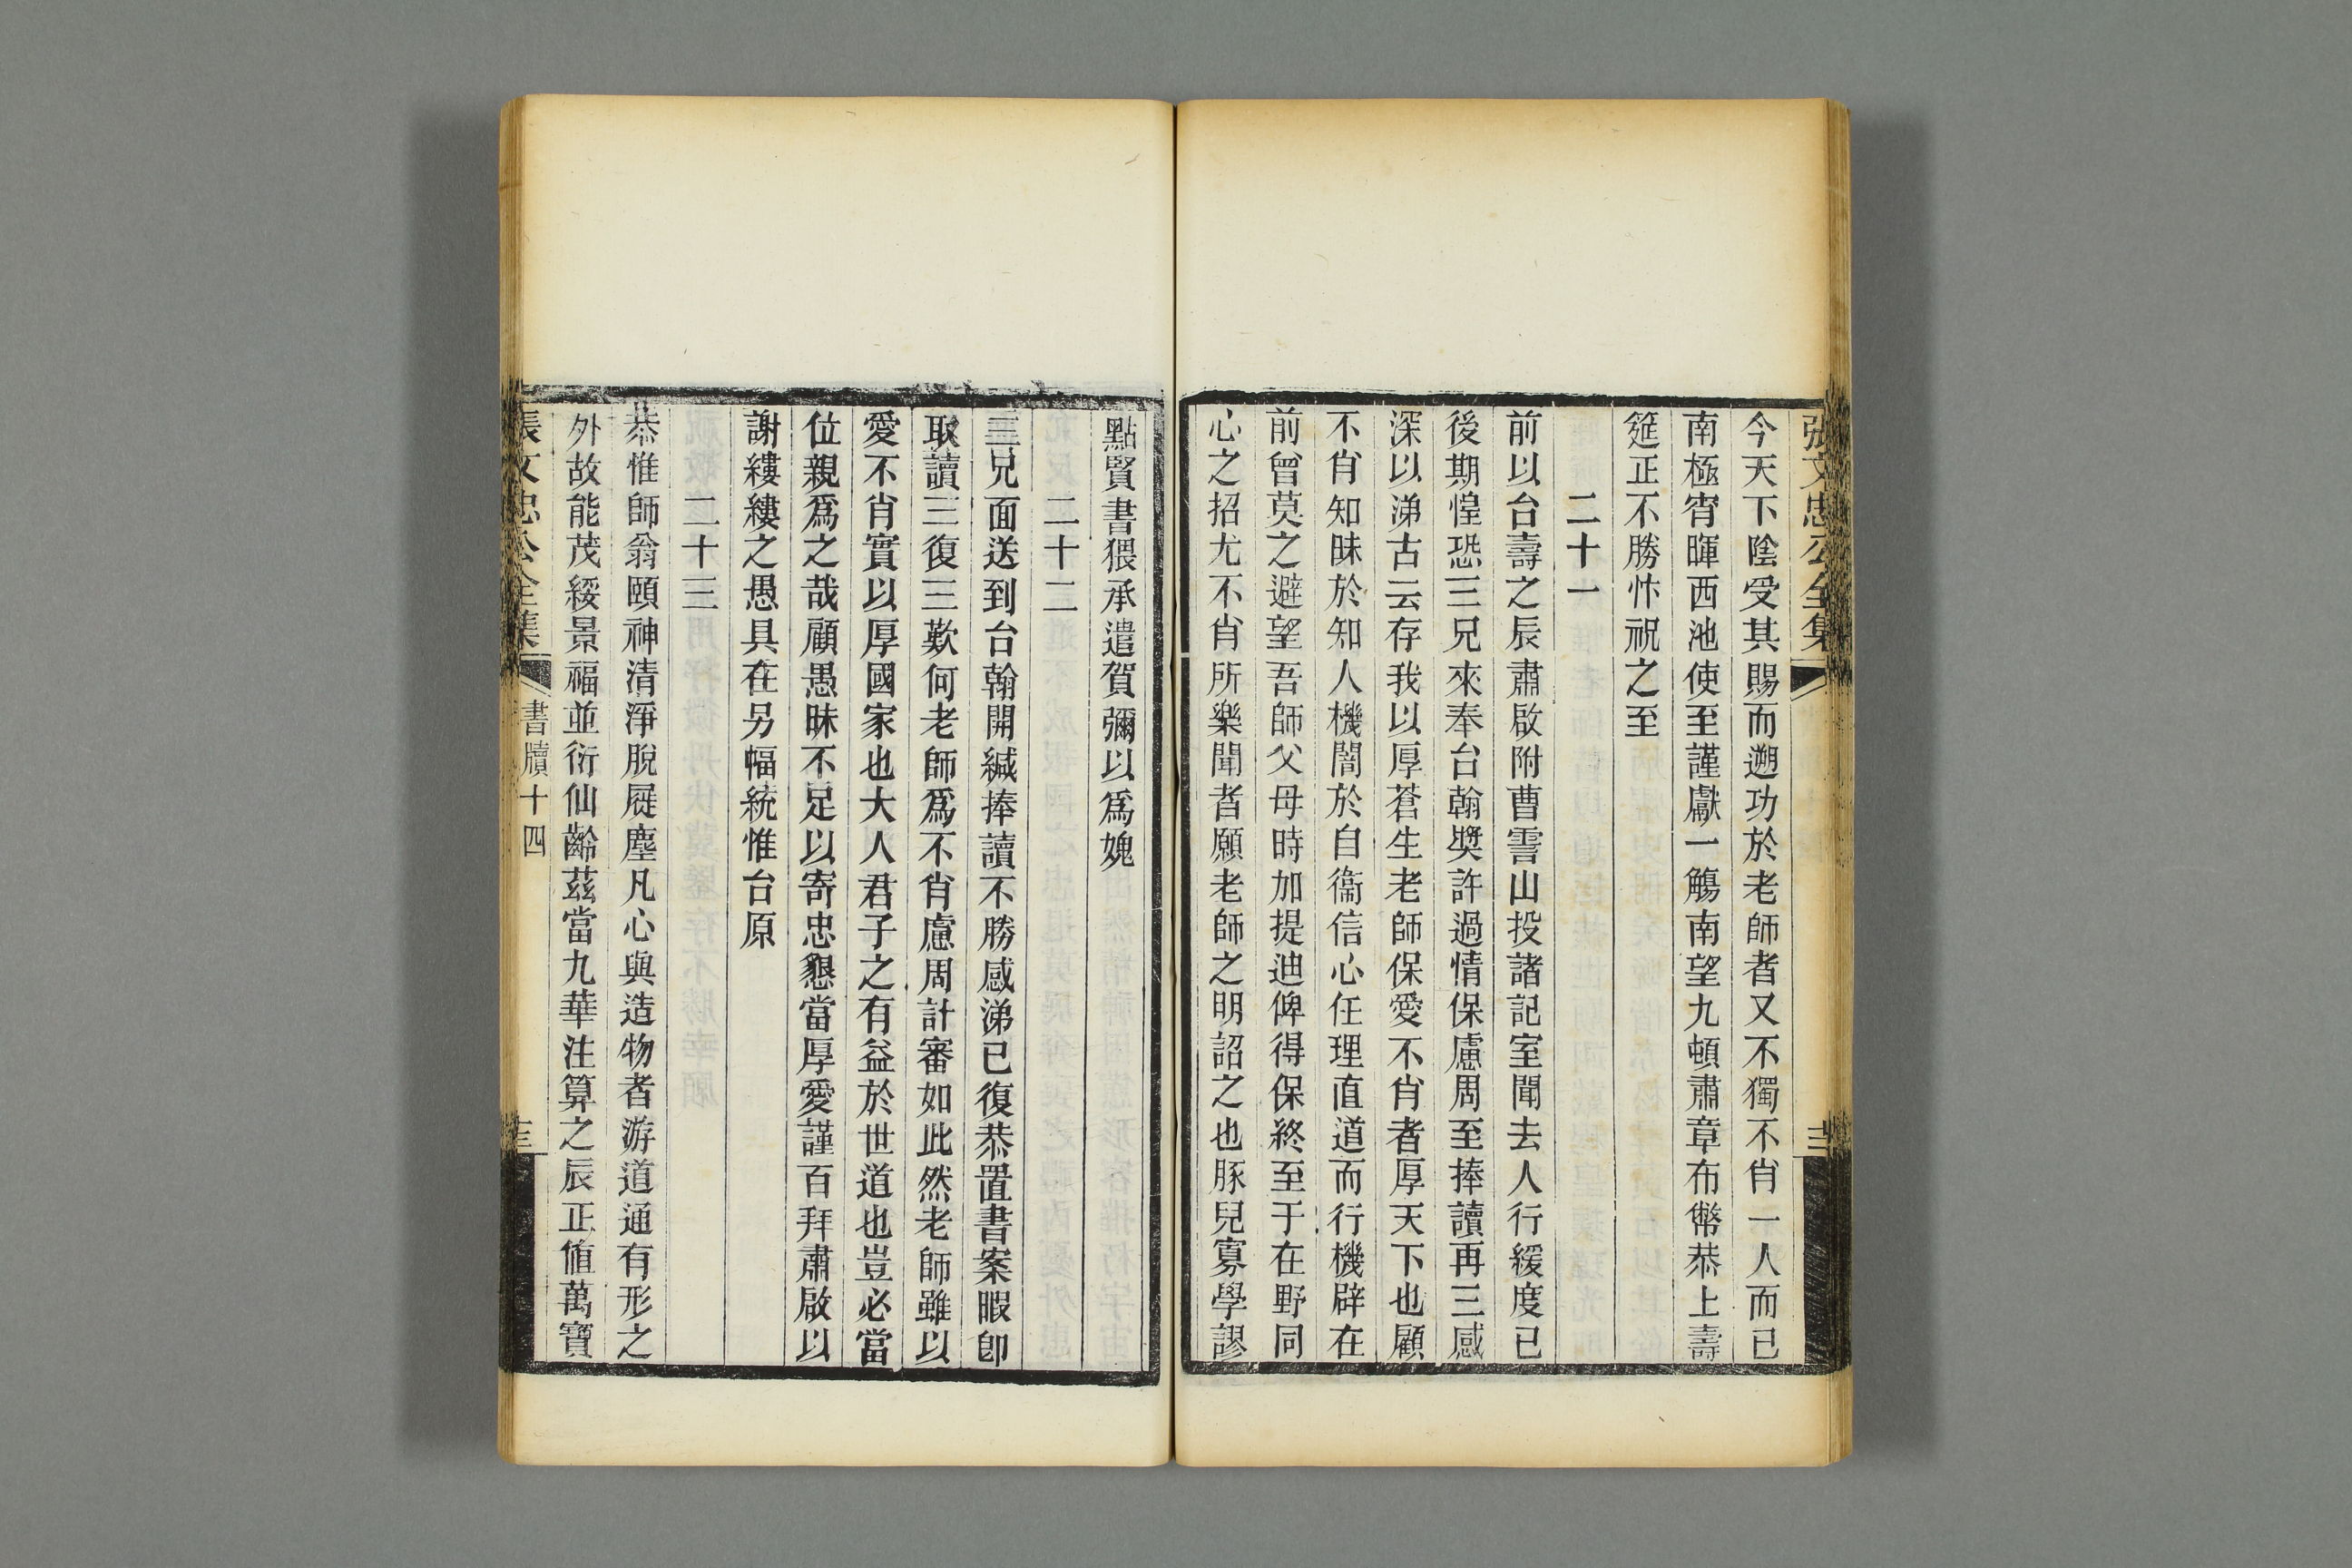 張文忠公全集
今天下陰受其賜而遡功於老師者又不獨不肖一人而已
南極宵暉西池使至謹獻一觴南望九頓肅章布幣恭上壽
筵正不勝忭祝之至
二十一
前以台壽之辰肅啟附曹霅山投諸記室聞去人行緩度已
後期惶恐三兄來奉台翰獎許過情保慮周至捧讀再三感
深以涕古云存我以厚蒼生老師保愛不肖者厚天下也顧
不肖知昧於知人機闇於自衞信心任理直道而行機辟在
前曾莫之避望吾師父母時加提迪俾得保終至于在野同
心之招尤不肖所樂聞者願老師之明詔之也豚兒寡學謬
點賢書猥承遣賀彌以爲媿
二十二
三兄面送到台翰開緘捧讀不勝感涕已復恭置書案暇卽
取讀三復三歎何老師爲不肖慮周計審如此然老師雖以
愛不肖實以厚國家也大人君子之有益於世道也豈必當
位親爲之哉顧愚昧不足以寄忠懇當厚愛謹百拜肅啟以
謝縷縷之愚具在另幅統惟台原
二十三
恭惟師翁頤神清淨脫屣塵凡心與造物者游道通有形之
外故能茂綏景福並衍仙齡茲當九華注算之辰正値萬寶
張文忠公全集 書牘十四